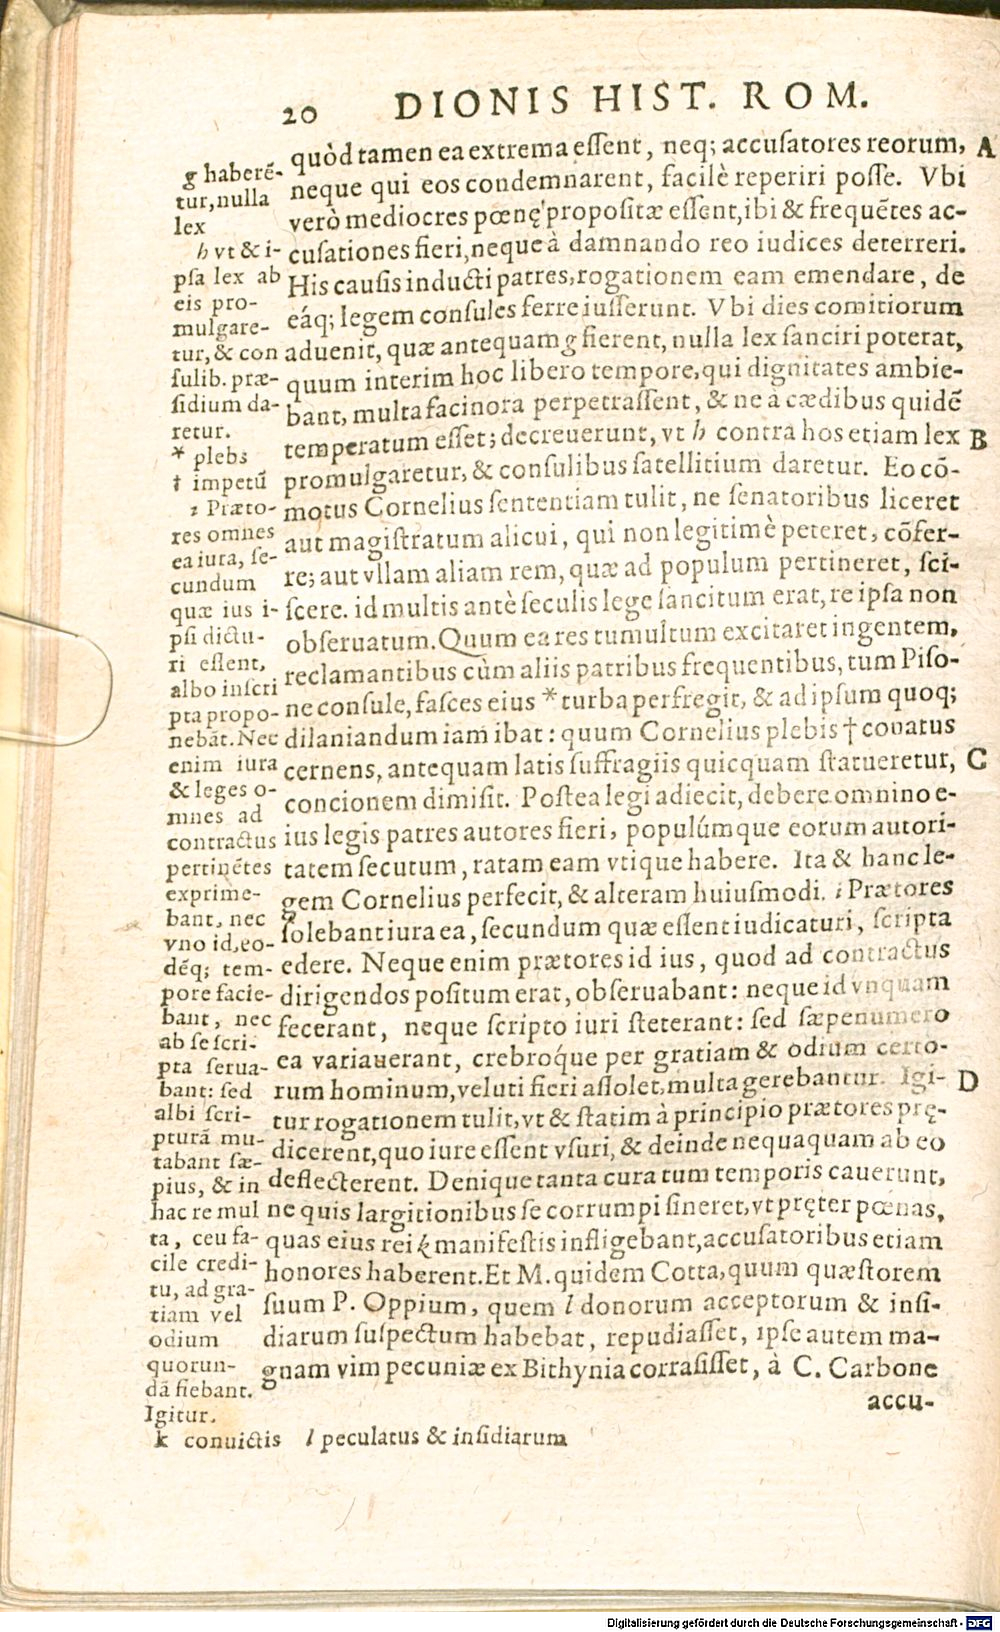 20 DIONIS HIST. ROM.
quòd tamen ea extrema eſſent, neq; accuſatores reorum, A
neque qui eos condemnarent, facilè reperiri poſſe. Vbi
verò mediocres pœnę propoſitæ eſſent, ibi & frequẽtes ac-
cuſationes fieri, neque à damnando reo iudices deterreri.
His cauſis inducti patres, rogationem eam emendare, de
eáq; legem conſules ferre iuſſerunt. Vbi dies comitiorum
aduenit, quæ antequam g fierent, nulla lex ſanciri poterat,
quum interim hoc libero tempore, qui dignitates ambie-
bant, multa facinora perpetraſſent, & ne à cædibus quidẽ
temperatum eſſet; decreuerunt, vt h contra hos etiam lex B
promulgaretur, & conſulibus ſatellitium daretur. Eo cõ-
motus Cornelius ſententiam tulit, ne ſenatoribus liceret
aut magiſtratum alicui, qui non legitimè peteret, cõfer-
re; aut vllam aliam rem, quæ ad populum pertineret, ſci-
ſcere. id multis antè ſeculis lege ſancitum erat, re ipſa non
obſeruatum. Quum ea res tumultum excitaret ingentem,
reclamantibus cùm aliis patribus frequentibus, tum Piſo-
ne conſule, faſces eius * turba perfregit, & ad ipſum quoq;
dilaniandum iam ibat: quum Cornelius plebis † conatus
cernens, antequam latis ſuffragiis quicquam ſtatueretur, C
concionem dimiſit. Poſtea legi adiecit, debere omnino e-
ius legis patres autores fieri, populúmque eorum autori-
tatem ſecutum, ratam eam vtique habere. Ita & hanc le-
gem Cornelius perfecit, & alteram huiuſmodi. i Prætores
ſolebant iura ea, ſecundum quæ eſſent iudicaturi, ſcripta
edere. Neque enim prætores id ius, quod ad contractus
dirigendos poſitum erat, obſeruabant: neque id vnquam
fecerant, neque ſcripto iuri ſteterant: ſed ſæpenumero
ea variauerant, crebroq́ue per gratiam & odium certo-
rum hominum, veluti fieri aſſolet, multa gerebantur. Igi- D
tur rogationem tulit, vt & ſtatim à principio prætores prę-
dicerent, quo iure eſſent vſuri, & deinde nequaquam ab eo
deflecterent. Denique tanta cura tum temporis cauerunt,
ne quis largitionibus ſe corrumpi ſineret, vt pręter pœnas,
quas eius rei k manifeſtis infligebant, accuſatoribus etiam
honores haberent. Et M. quidem Cotta, quum quæſtorem
ſuum P. Oppium, quem l donorum acceptorum & inſi-
diarum ſuſpectum habebat, repudiaſſet, ipſe autem ma-
gnam vim pecuniæ ex Bithynia corraſiſſet, à C. Carbone
accu-
g haberẽ-
tur, nulla
lex
h vt & i-
pſa lex ab
eis pro-
mulgare-
tur, & con
ſulib. præ-
ſidium da-
retur.
* plebs
† impetũ
i Præto-
res omnes
ea iura, ſe-
cundum
quæ ius i-
pſi dictu-
ri eſſent,
albo inſcri
pta propo-
nebãt. Nec
enim iura
& leges o-
mnes ad
contractus
pertinẽtes
exprime-
bant, nec
vno id, eo-
dẽq; tem-
pore facie-
bant, nec
ab ſe ſcri-
pta ſerua-
bant: ſed
albi ſcri-
pturã mu-
tabant ſæ-
pius, & in
hac re mul
ta, ceu fa-
cile credi-
tu, ad gra-
tiam vel
odium
quorun-
dã fiebant.
Igitur.
k conuictis l peculatus & inſidiarum
Digitalisierung gefördert durch die Deutsche Forschungsgemeinschaft - DFG